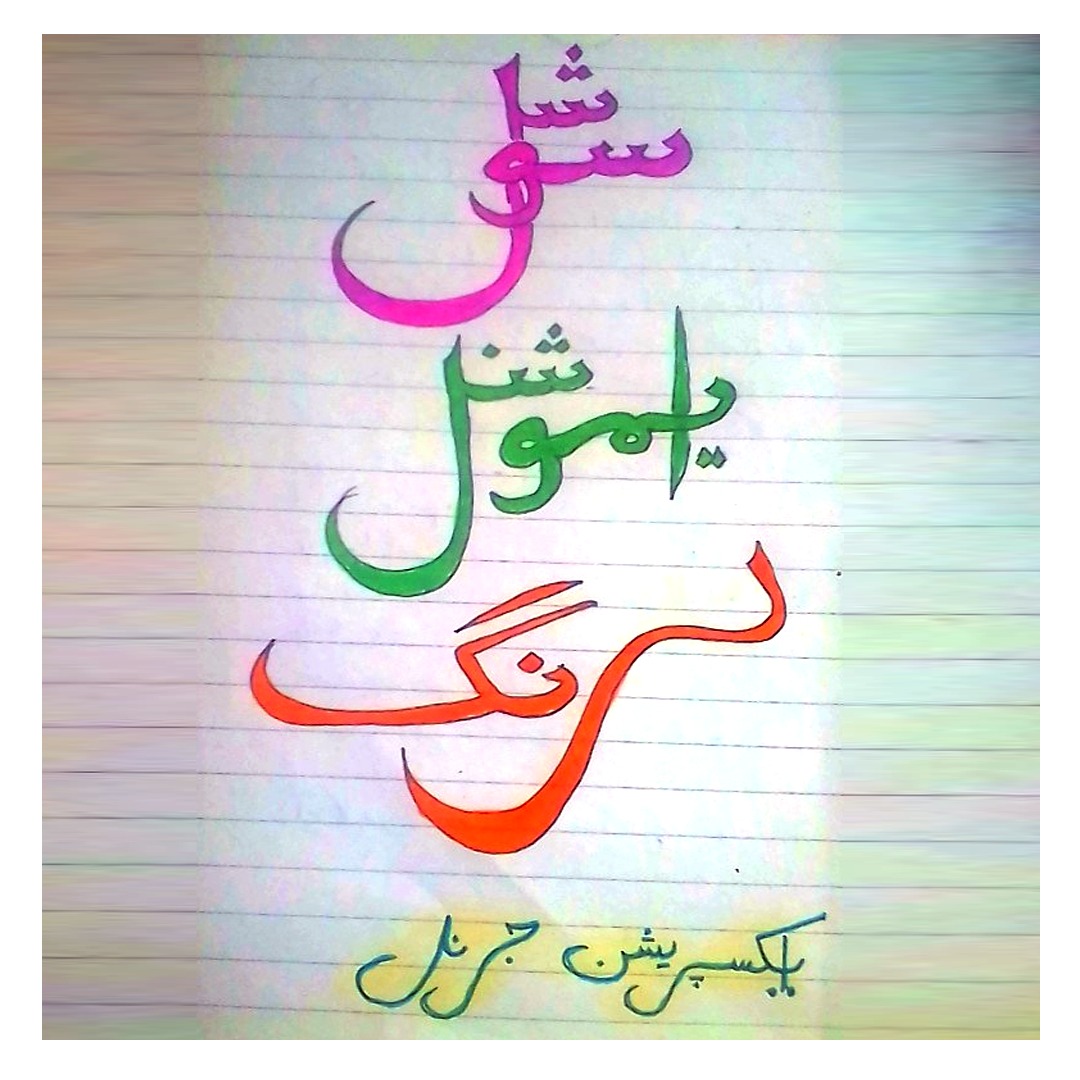 سوشل
ایموشنل
لرنگ
ایکسپریشن جرنل